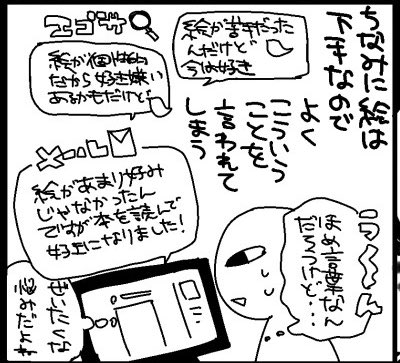 ちなみに絵は
下手なので
よく
こういう
ことを
言われて
しまう
絵が苦手だった
んだけど
今は好き
エゴサ
絵が個性的
だから好き嫌い
あるかもだけど
メール
絵があまり好み
じゃなかったん
ですが本を読んで
好きになりました!
う〜〜ん
ほめ言葉なん
だろうけど…
ぜいたくな
悩みだ